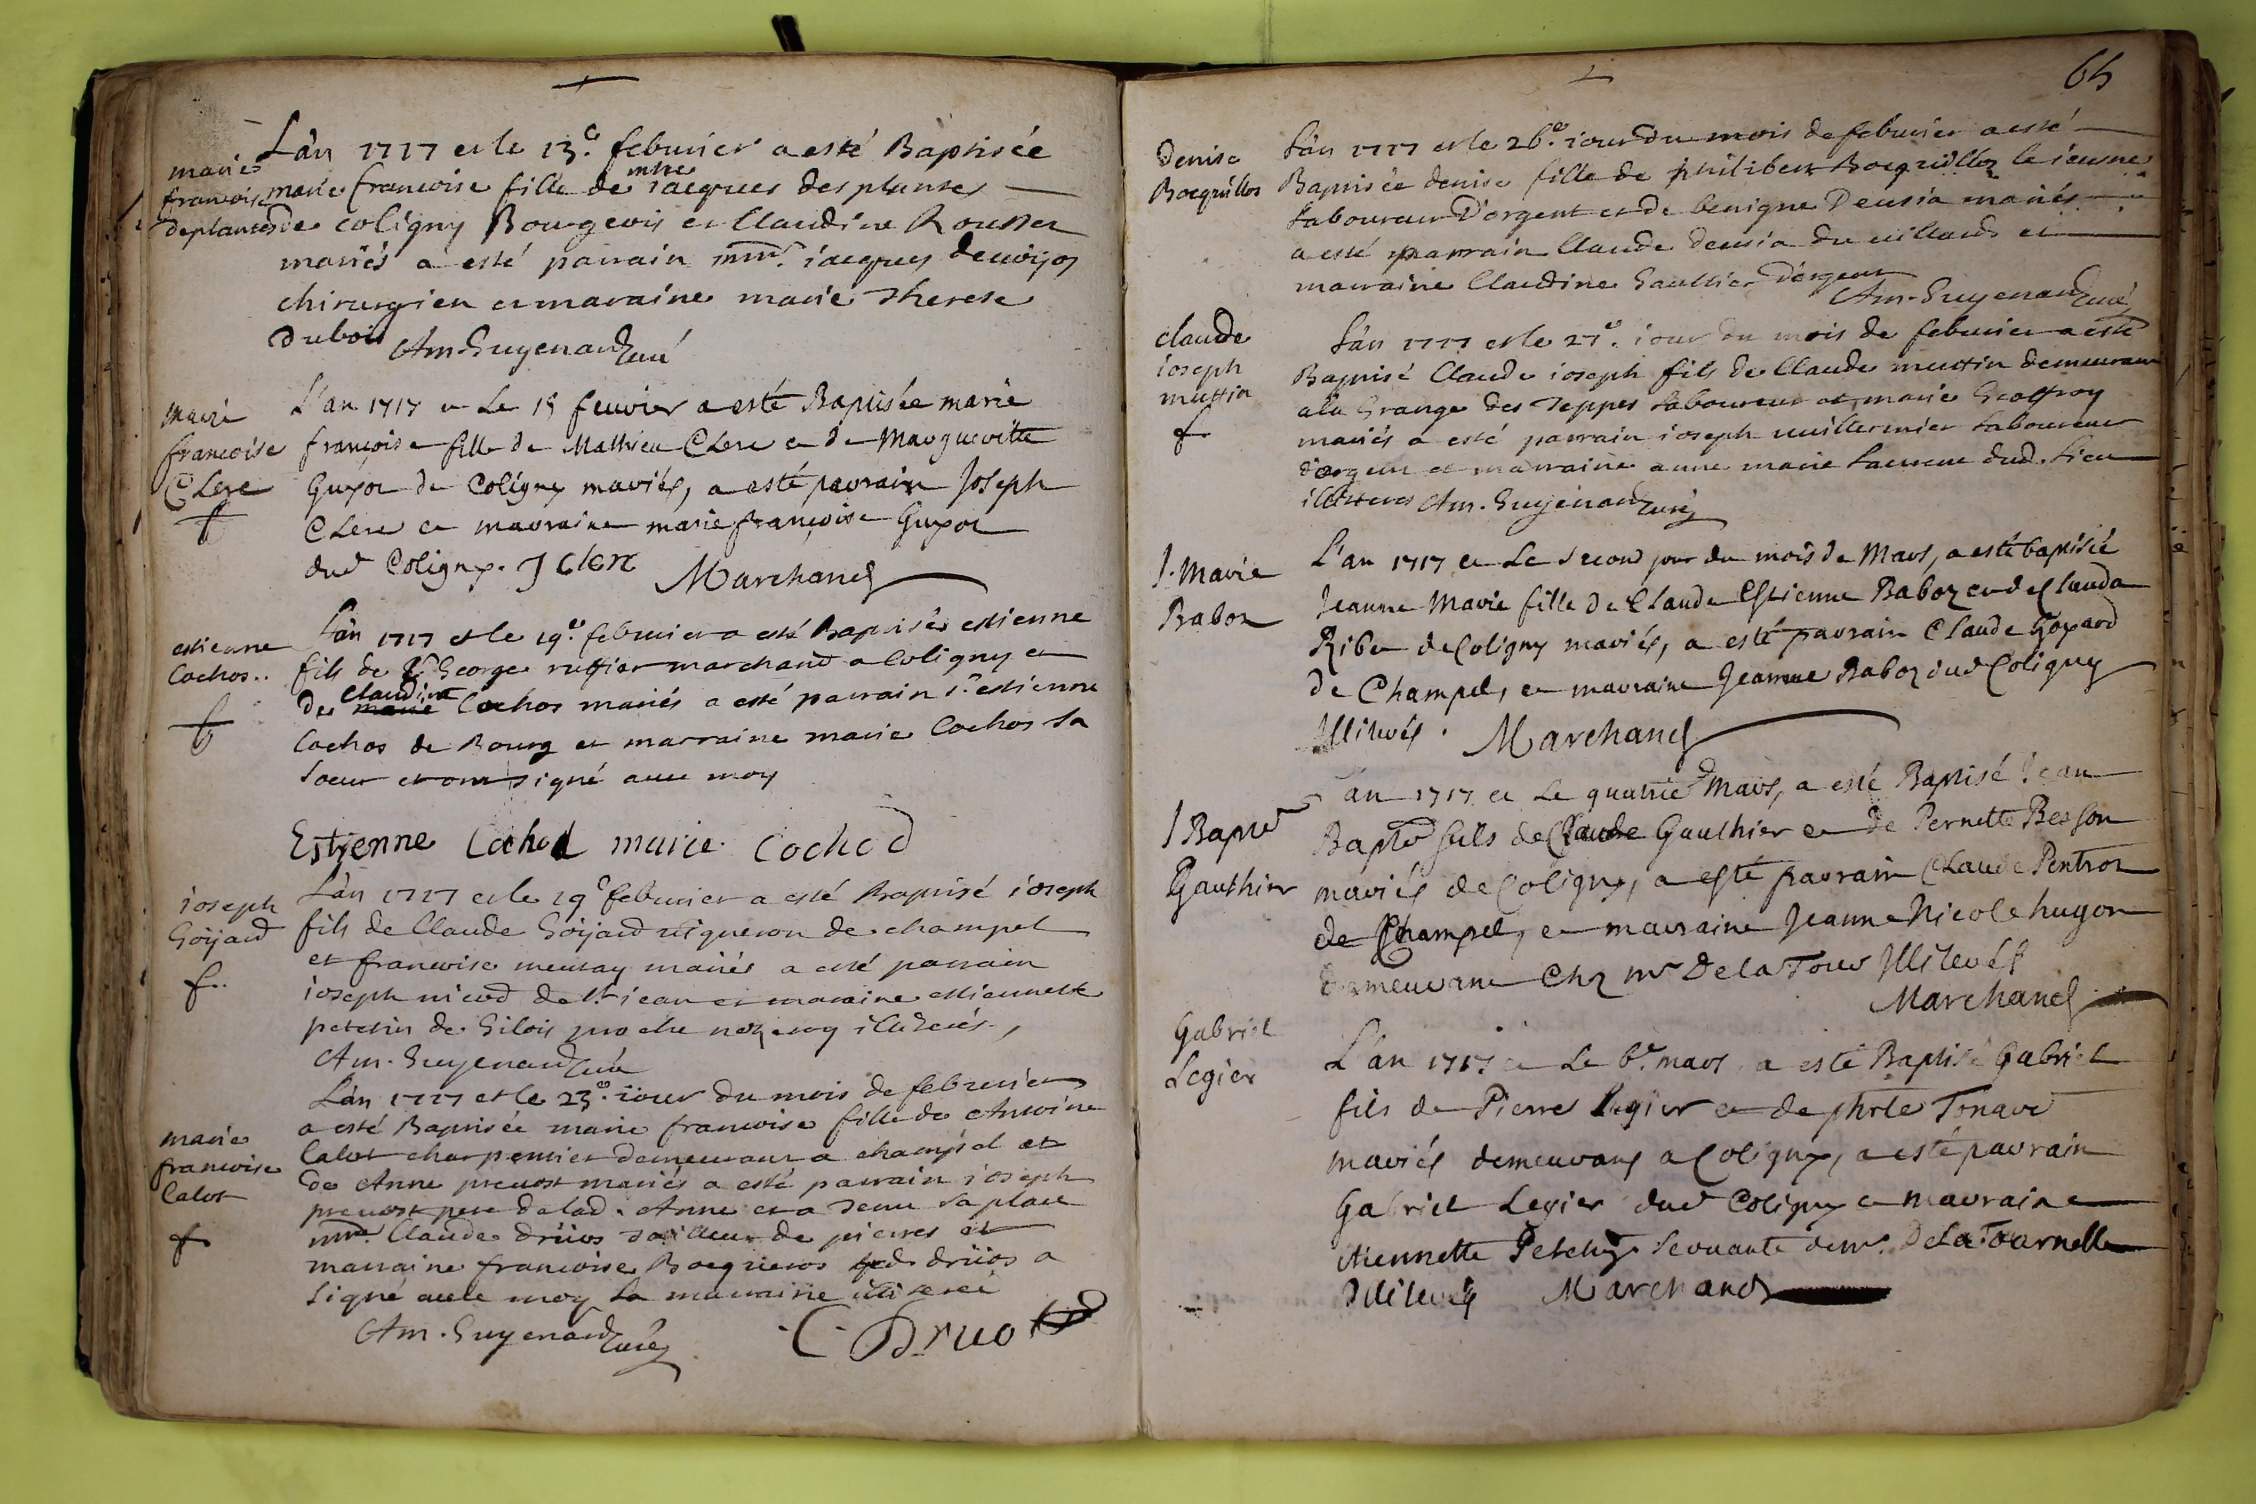 marie
francoise
deplantes
L'an 1717 et le 13.e febvrier a esté Baptisée
marie francoise fille de mtre iacques desplantes
de coligny Bourgeois et Claudine Rousset
mariés a esté parrain mtre. iacques
chirurgien et maraine marie Therese
dubois Am. Guyenard curé
marie
francoise
CLerc
L'an 1717 e Le 15 feuvrier a esté Baptisée marie
françoise fille de Mathieu CLerc e de Margueritte
Guyot de Coligny mariés, a esté parrain Joseph
CLerc e marraine marie françoise Guyot
dud Coligny. J clerc Marchand
estienne
Cochos..
L'an 1717 et le 19.e febvrier a esté Baptisé estienne
fils de Sr George ruffier marchand a Coligny et
de claudine marie Cochos mariés a esté parrain sr estienne
Cochos de Bourg et marraine marie Cochos sa
soeur et ont signé avec moy
Estienne Cochod marie Cochod
ioseph
Goijard
L'an 1717 et le 19e febvrier a esté Baptisé ioseph
fils de Claude Goijard vigneron de champel
et francoise mariés a esté parrain
ioseph nicod de St iean et maraine estiennette
petetin de Gilois proche nozeroy illiterés,
Am. Guyenard curé
marie
francoise
Calot
L'an 1717 et le 23.e iour du mois de febvrier
a esté Baptisée marie francoise fille de Antoine
Calot charpentier demeurant a champel et
de Anne prevost mariés a esté parrain ioseph
prevost pere de lad. Anne et a tenu sa place
mtre. Claude drüos tailleur de pierres et
marraine francoise led drüos a
signé avec moy la marraine illiterée
Am. Guyenard curé C. Druot
64
Denise
Bocquillos
L'an 1717 et le 26.e iour du mois de febvrier a esté
Baptisée denise fille de philibert Bocquillos le ieusne
laboureur D'orgent et de benigne Deusia mariés
a esté parrain Claude deusia du villard et
marraine Claudine Gaulthier d'orgent
Am. Guyenard curé
claude
ioseph
muttin
L'an 1717 et le 27e. iour du mois de febvrier a esté
Baptisé Claude ioseph fils de Claude muttin demeurant
a la Grange des Teppes laboureur et marie Geoffroy
mariés a esté parrain ioseph vuillermier laboureur
d'orgent et marraine anne marie dud. lieu
illitteres Am. Guyenard curé
J. Marie
Baboz
L'an 1717 e Le second jour du mois de Mars, a esté baptisée
Jeanne Marie fille de Claude Estienne Baboz e de Clauda
Ribe de Coligny mariés, a esté parrain Claude Goyard
de Champel, e marraine Jeanne Baboz dud Coligny
Illiterés. Marchand
J Baptte
Gauthier
L'an 1717 e Le quatrie Mars, a esté Baptisé Jean
Baptte fils de Claude Gauthier e de Pernette Besson
mariés de Coligny, a esté parrain CLaude Pentroz
de Champel, e marraine Jeanne Nicole hugon
demeurant Chz mr De la Tour Illiterés
Marchand
Gabriel
Legier
L'an 1717 e Le 6.e mars, a esté Baptisé Gabriel
fils de Pierre Legier e de phrte Tonave
mariés demeurans a Coligny, a esté parrain
Gabriel Legier dud Coligny e marraine
etiennette servante de mr. De La Tournelle
Illiterés Marchand